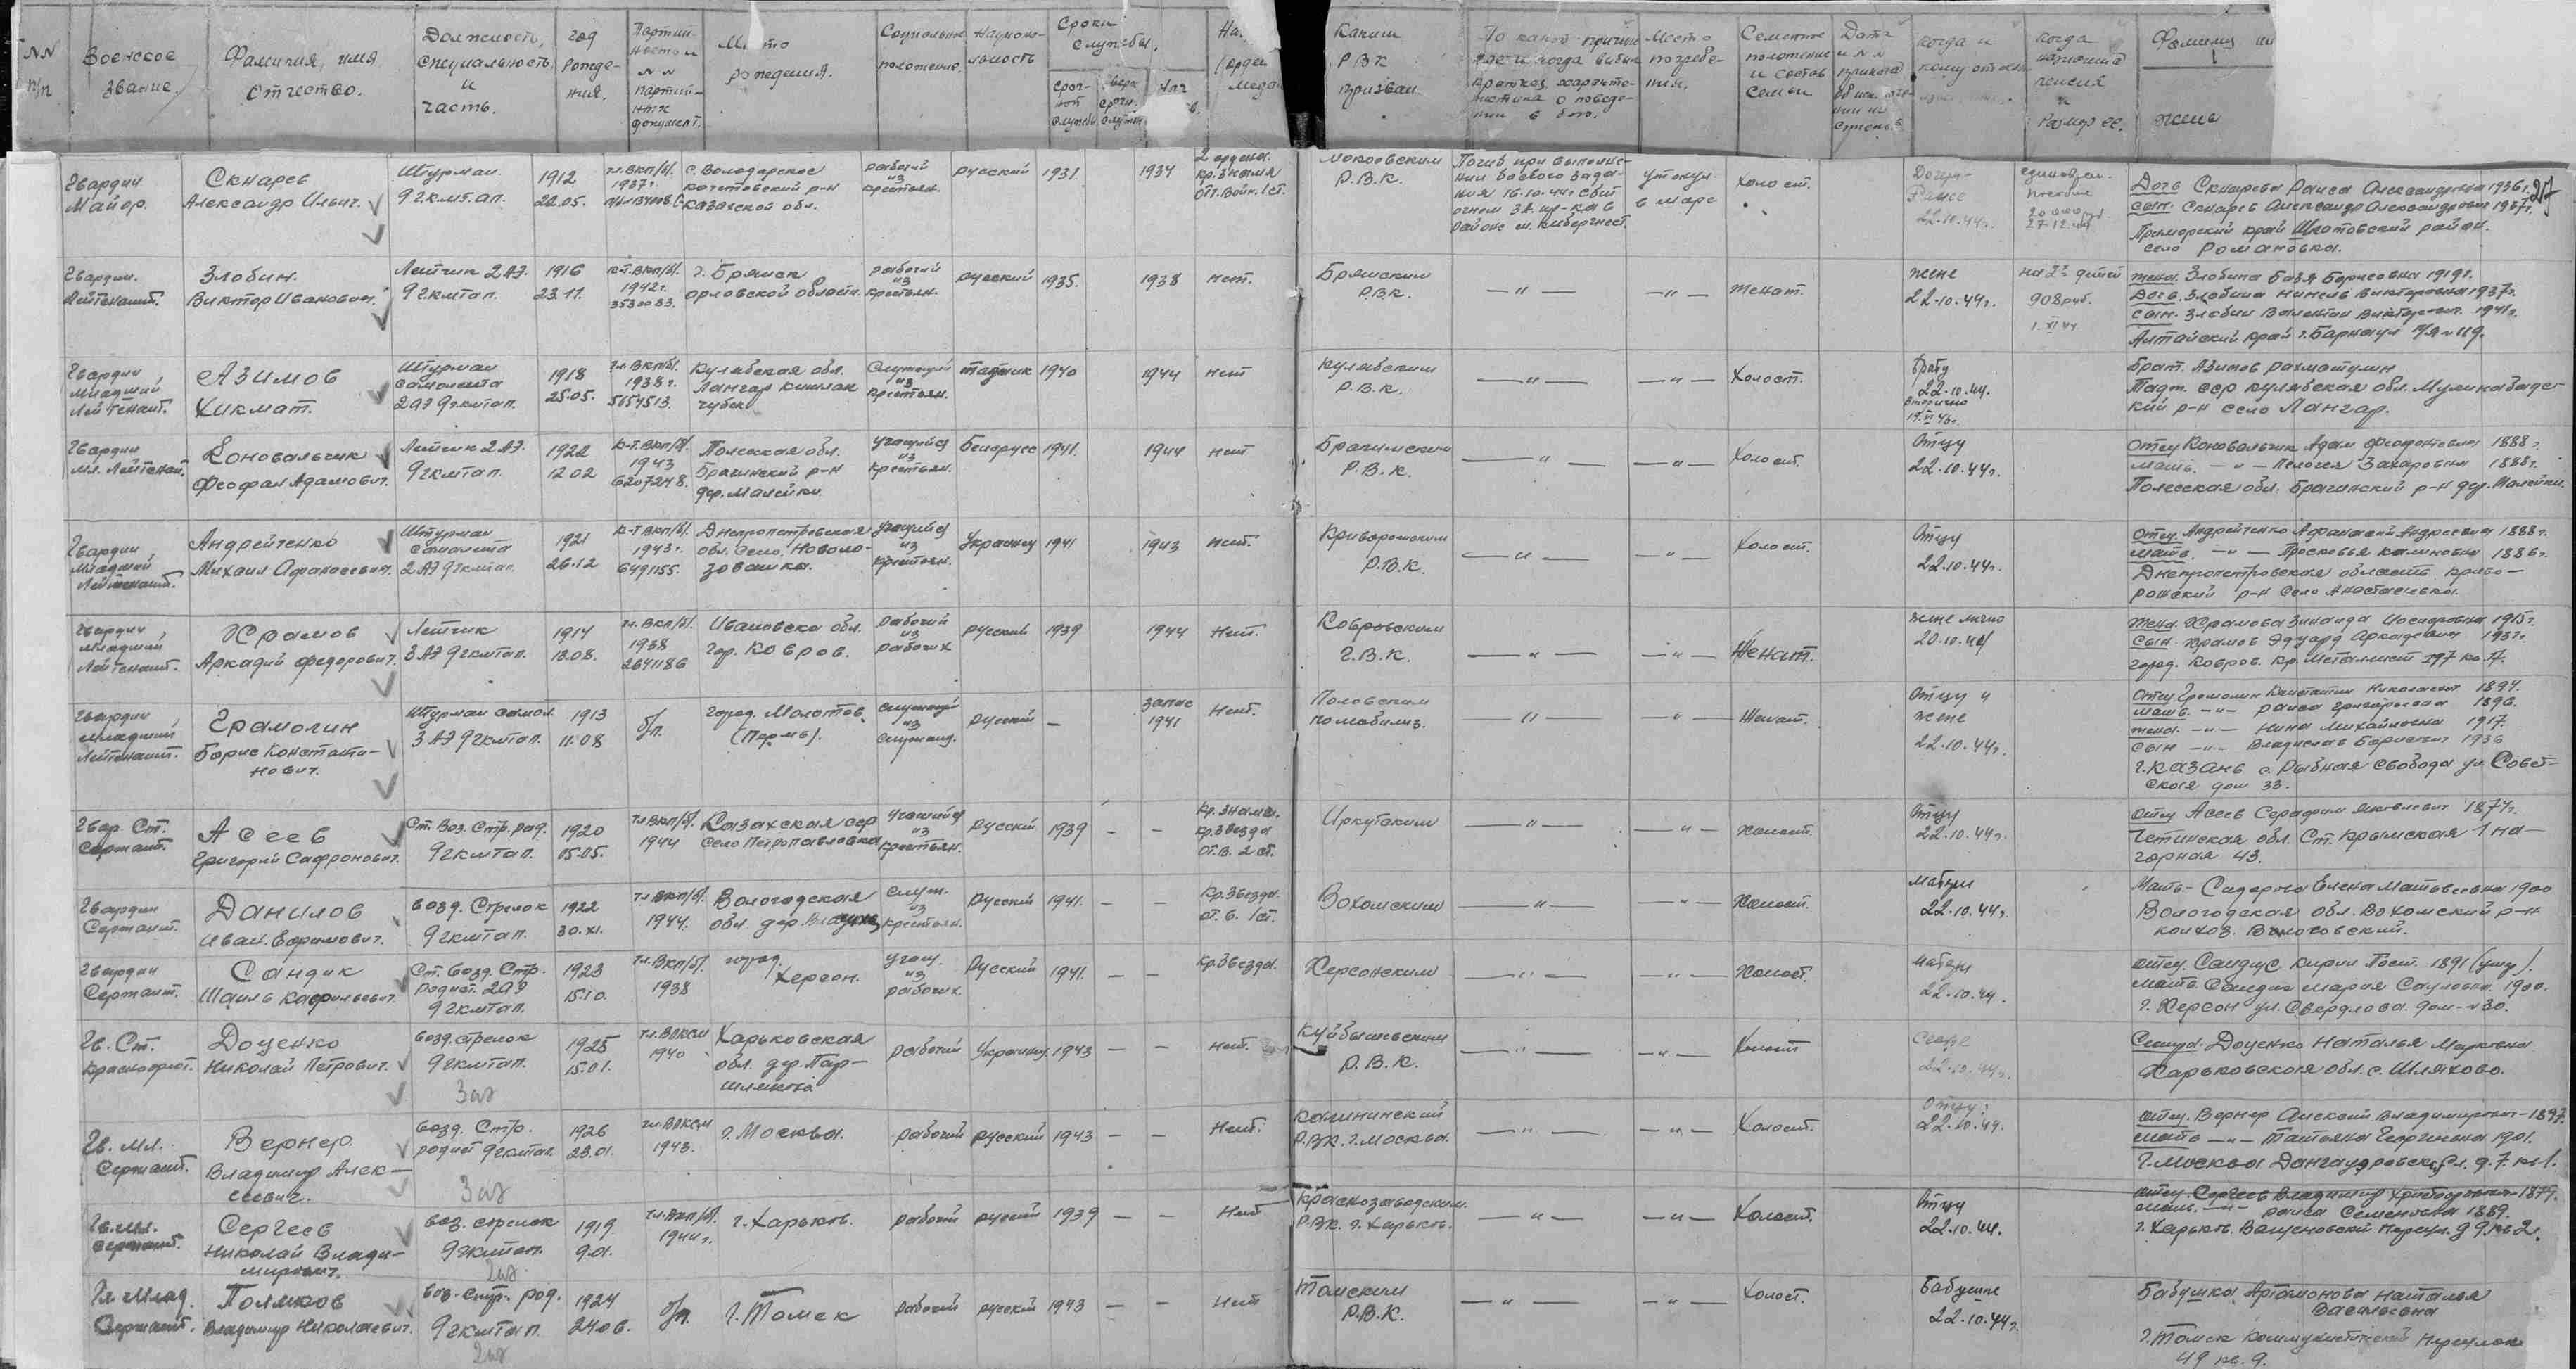 NN п/п
Воинское звание.
Фамилия, имя отчество.
Должность, специальность и часть.
Год рожде-ния.
Партий-ность и NN партий-ных документ.
Место рождения.
Социальное положение.
Национа-льность
Сроки службы.
Каким Р.В.К призван
По какой причине где и когда выбыл краткая характе-ристика о поведе-нии в бою.
Место погребе-ния.
Семейное положение и состав семьи
когда и кому
когда назначена пенсия и размер ее.
Фамилия
жены
Гвардии Майор.
Скнарев Александр Ильич.
Штурман 9 гкмтап.
1912 22.05.
чл. ВКП/б/. 1937г.
с. Володарское
рабочий из крестьян.
русский
1931.
1934
2 ордена. Кр. Знамя От. Войн. 1 ст.
Р.В.К.
Погиб при выполне-
нии боевого зада-
ния 16.10.44г сбит
огнем ЗА. пр-ка в
районе
утонул в море
Холост.
22.10.44г.
27.12.44
Дочь Скнарева Раиса Александровна 1936г.
Сын. Скнарев Александр Александрович 1937г.
Приморский край Шкотовский район.
село Романовка.
27
Гвардии. Лейтенант.
Злобин. Виктор Иванович.
Летчик 2 АЭ. 9 гкмтап.
1916 23.11.
к-т. ВКП/б/. 1942г. 3530083.
г. Брянск орловской области.
рабочий из крестьян.
русский
1935.
1938
нет.
Брянским Р.В.К.
— " —
— " —
женат.
жене 22.10.44г.
на 2х детей 908 руб. 1.XI.44
жена. Злобина Базя Борисовна 1919г.
Дочь. Злобина Нинель Викторовна 1937г.
Сын. Злобин Валентин Викторович. 1941г.
Алтайский край г. Барнаул п/я N 119.
Гвардии Младший Лейтенант.
Азимов Хикмат.
Штурман самолета 2 АЭ 9 гкмтап.
1918 25.05.
чл. ВКП/б/. 1938г. 5654513.
Кулябская обл. Лангар кишлак
Служащий из крестьян.
таджик
1940
1944
нет
Кулябским Р.В.К.
— " —
— " —
Холост.
брату 22.10.44. вторично
брат. Азимов Рахматулин
Тадж. сср Кулябская обл.
кий р-н село Лангар.
Гвардии мл. Лейтенант.
Коновальчик Феофан Адамович.
Летчик 2 АЭ. 9 гкмтап.
1922 12 02
к-т. ВКП/б/. 1943 6207248.
Полесская обл. Брагинский р-н дер. Малейки.
учащийся из крестьян.
Беларусс
1941.
1944
нет
Брагинским Р.В.К.
— " —
— " —
Холост.
Отцу 22.10.44г.
отец Коновальчик Адам 1888г.
мать. — " — Пелагея Захаровна 1888г.
Полесская обл. Брагинский р-н дер. Малейки.
Гвардии Младший Лейтенант.
Андрейченко Михаил Афанасевич.
Штурман самолета 2 АЭ 9 гкмтап.
1921 26.12
к-т ВКП/б/. 1943г. 6491155.
Днепропетровская обл. село.
учащийся из крестьян.
Украинец
1941
1943
нет.
Криворожским Р.В.К.
— " —
— " —
Холост.
Отцу 22.10.44г.
Отец. Андрейченко Афанасий Андреевич 1888г.
мать. — " — Просковья Калиновна 1886г.
Днепропетровская область криво-
рожский р-н село Анастасьевка.
Гвардии Младший Лейтенант.
Храмов Аркадий Федорович.
Летчик 3 АЭ 9 гкмтап.
1914 18.08.
чл. ВКП/б/. 1938 2641186
Ивановска обл. гор. Ковров.
рабочий из рабочих
русский
1939
1944
Нет.
Ковровским Г.В.К.
— " —
— " —
Женат.
жене лично 20.10.44
жена. Храмова Зинаида 1915г.
Сын. Храмов Эдуард Аркадевич 1937г.
город. Ковров. Кр. Металлист
Гвардии Младший Лейтенант.
Грамолин Борис Константи-нович.
Штурман самол. 3 АЭ 9 гкмтап.
1913 11.08
б/п.
город. Молотов. (Пермь).
служащий из служащ.
русский
—
запас 1941
нет.
по мобилиз.
— " —
— " —
Женат.
Отцу и жене 22.10.44г.
Отец Грамолин Константин Николаевич 1894.
мать. — " — Раиса Григорьевна 1896.
жена. — " — Нина Михайловна 1917.
Сын — " — Владислав Борисович 1936
г. Казань с. Рыбная Свобода ул. Совет-
ская дом 33.
Гвар. Ст. Сержант.
Асеев Григорий Сафронович.
Ст. Воз. Стр. рад. 9 гкмтап.
1920 05.05.
чл. ВКП/б/. 1944
Казахская сср село Петропавловка
учащийся из крестьян.
русский.
1939
—
—
Кр. Знамя. Кр. Звезда От. В. 2 ст.
Иркутским
— " —
— " —
холост.
Отцу 22.10.44г.
отец Асеев Серафим Яковлевич 1874г.
Четинская обл. Ст. Крымская 1 на-
горная 43.
Гвардии Сержант.
Данилов Иван. Ефимович.
возд. Стрелок 9 гкмтап.
1922 30.XI.
чл. ВКП/б/. 1944.
Вологодская обл. дер.
служ. из крестьян.
Русский
1941.
—
—
Кр. Звезда. от. в. 1 ст.
Вохомским
— " —
— " —
Холост.
матери 22.10.44г.
Мать. Сидорова Елена Матвеевна 1900
Вологодская обл. Вохомский р-н
колхоз.
Гвардии Сержант.
Сандик
Ст. возд. Стр. радист. 2 АЭ 9 гкмтап.
1923 15.10.
чл. ВКП/б/. 1938
город. Херсон.
учащ. из рабочих.
Русский
1941.
—
—
Кр. Звезда.
Херсонским
— " —
— " —
Холост.
матери 22.10.44.
отец. Сандик 1891 (умер).
мать. Сандик Мария Сауловна 1900.
г. Херсон ул. Свердлова. дом N 30.
Гв. Ст. Красноарм.
Доценко Николай Петрович.
возд. стрелок 9 гкмтап.
3 аэ
1925 15.01.
чл. ВЛКСМ 1940
Харьковская обл. дер.
рабочий
Украинец.
1943
—
—
нет.
Куйбышевским Р.В.К.
— " —
— " —
Холост
22.10.44г.
Сестра. Доценко Наталья Марковна
Харьковская обл. с. Шляхово.
Гв. мл. Сержант.
Вернер. Владимир Алек-сеевич.
возд. Стр. радист 9 гкмтап.
3 аэ
1926 23.01.
чл. ВЛКСМ 1943.
г. Москва.
рабочий
русский
1943
—
—
Нет.
Калининский Р.ВК. г. Москва.
— " —
— " —
Холост.
Отцу. 22.10.44.
отец. Вернер Алексей Владимирович - 1897.
мать — " — Татьяна Георгиевна 1901.
г. Москва д. 7. кв 1.
Гв. мл. сержант.
Сергеев Николай Влади-мирович.
воз. стрелок 9 гкмтап.
2 аэ
1919. 9.01.
чл. ВКП/б/. 1944г.
г. Харьков.
рабочий
русский
1939
—
—
Нет
Краснозаводским. Р.ВК. г. Харьков.
— " —
— " —
Холост.
Отцу 22.10.44.
отец. Сергеев Владимир Христофорович - 1879.
мать. — " — Раиса Семеновна 1889.
г. Харьков.
Гв. млад. Сержант.
Поляков Владимир Николаевич.
воз. стр. рад. 9 гкмтап
2 аэ
1924 24 06.
б/п.
г. Томск
рабочий
русский
1943
—
—
нет
Томским Р.В.К.
— " —
— " —
Холост.
Бабушке 22.10.44г.
Бабушка. Артамонова Наталья
Васильевна
г. Томск Коммунистический переулок
49 кв. 9.